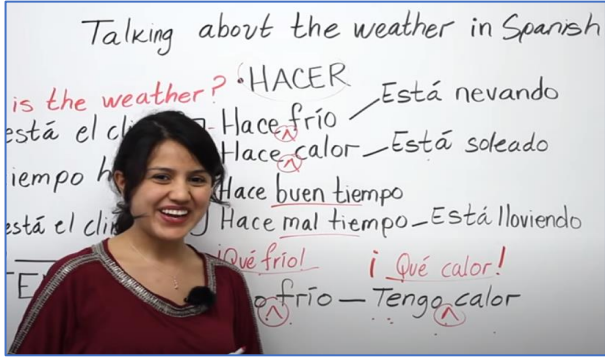 Talking about the weather in Spanish
is the weather? HACER
está el Hace frío Está nevando
Hace calor Está soleado
Hace buen tiempo
está el Hace mal tiempo Está lloviendo
¡Qué frío! ¡Qué calor!
frío — Tengo calor